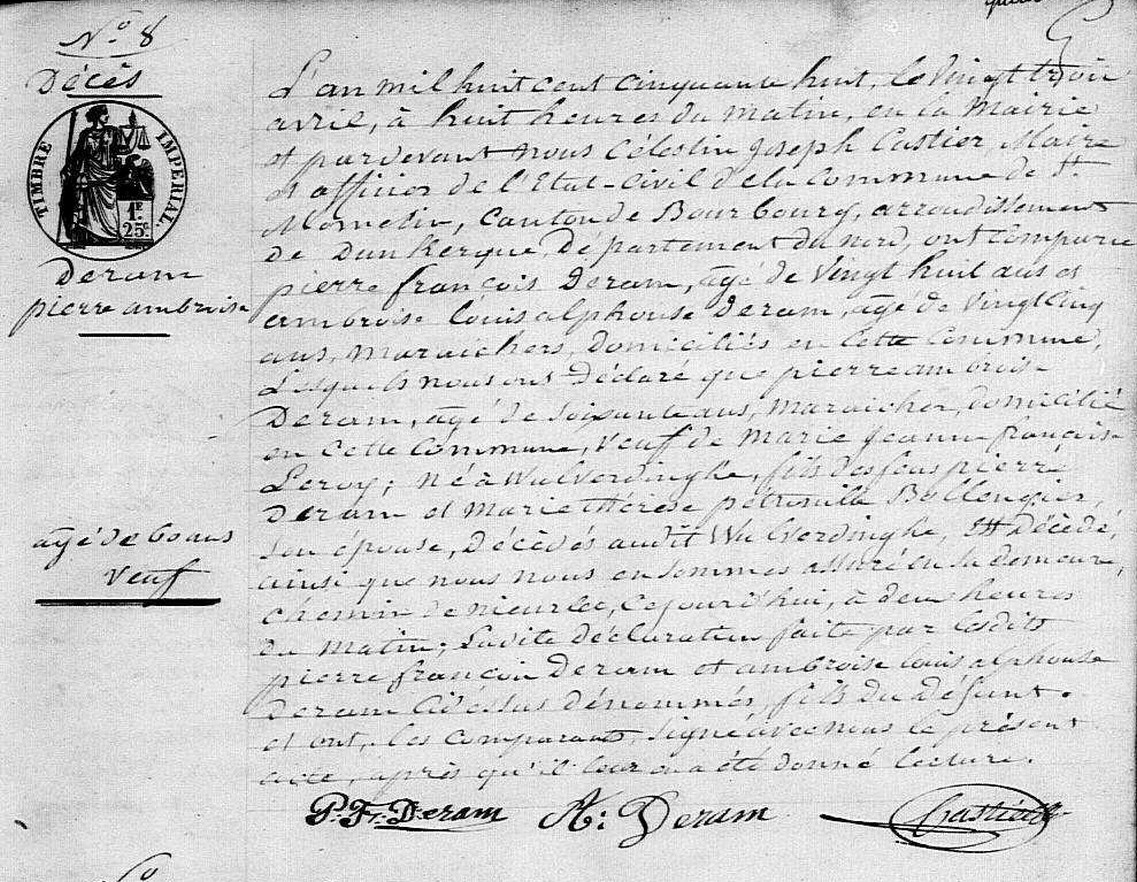 N.° 8
Décès
TIMBRE IMPERIAL.
1F.
25c
Deram
pierre ambroise
agé de 60 ans
veuf
L'an mil huit cent cinquante huit, le vingt trois
avril, à huit heures du matin, en la Mairie
et pardevant nous Célestin Joseph Castier, Maire
et officier de l'Etat-Civil de la Commune de St.
Momelin, Canton de Bourbourg, arrondissement
de Dunkerque, Département du nord, ont comparu
pierre françois Deram, agé de vingt huit ans et
ambroise louis alphonse Deram, agé de vingt cinq
ans, maraichers, domiciliés en cette Commune,
Lesquels nous ont Déclaré que pierre ambroise
Deram, agé de soixante ans, maraicher, domicilié
en cette Commune, veuf de Marie Jeanne françoise
Leroy; né à Wulverdinghe, fils des feus pierre
Deram et Marie thérèse pétronille Bollengier,
son épouse, décédés audit Wulverdinghe, Est Décédé,
ainsi que nous nous en sommes assuré en sa demeure,
chemin de nieurlet, Cejourd'hui, à deux heures
du matin; Ladite déclaration faite par lesdits
pierre françois Deram et ambroise louis alphonse
Deram Cidessus dénommés, fils du défunt.
et ont, les comparants, signé avec nous le présent
acte, après qu'il leur en a été donné lecture.
P. F. Deram A: Deram Castier